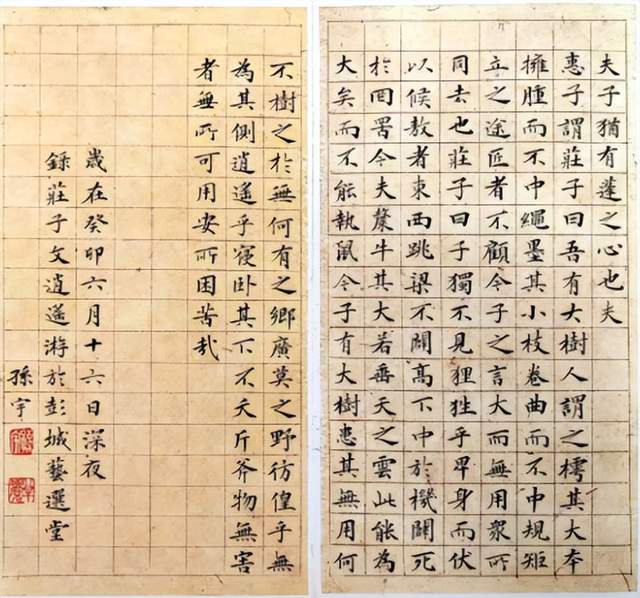 夫子猶有蓬之心也夫
惠子謂莊子曰吾有大樹人謂之樗其大本
擁腫而不中繩墨其小枝卷曲而不中規矩
立之途匠者不顧今子之言大而無用衆所
同去也莊子曰子獨不見狸狌乎卑身而伏
以候敖者東西跳梁不闢高下中於機闢死
於罔罟今夫斄牛其大若垂天之雲此能為
大矣而不能執鼠今子有大樹患其無用何
不樹之於無何有之鄉廣莫之野彷徨乎無
為其側逍遙乎寢卧其下不夭斤斧物無害
者無所可用安所困苦哉
歲在癸卯六月十六日深夜
錄莊子文逍遙游於彭城藝選堂
孫宇